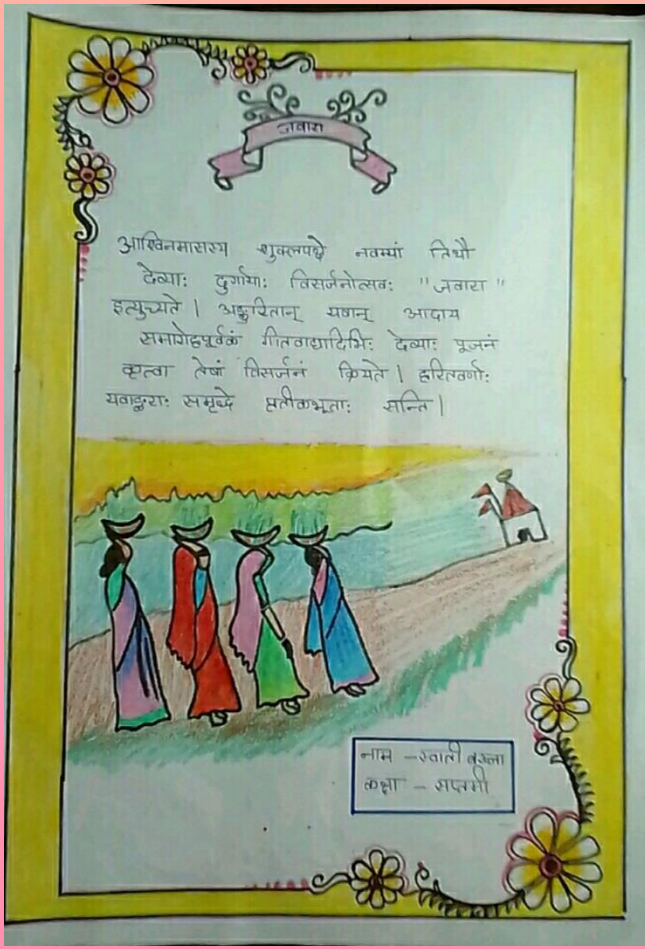 जवारा
आश्विनमासस्य शुक्लपक्षे नवम्यां तिथौ
देव्याः दुर्गायाः विसर्जनोत्सवः "जवारा"
इत्युच्यते । अङ्कुरितान् यवान् आदाय
समारोहपूर्वकं गीतवाद्यादिभिः देव्याः पूजनं
कृत्वा तेषां विसर्जनं क्रियते । हरितवर्णाः
यवाङ्कुराः समृद्धे प्रतीकभूताः सन्ति ।
नाम - स्वाती
कक्षा - सप्तमी